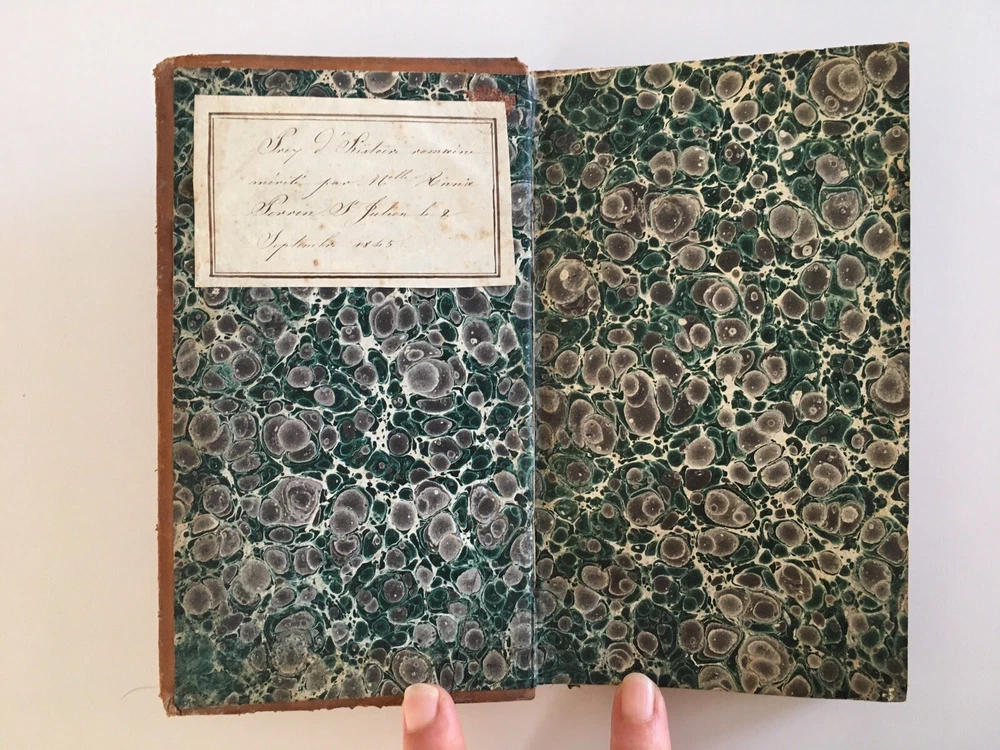 Prix d'Histoire romaine
mérité par Mlle Annie
Perrin St Julien le 2
Septembre 1865